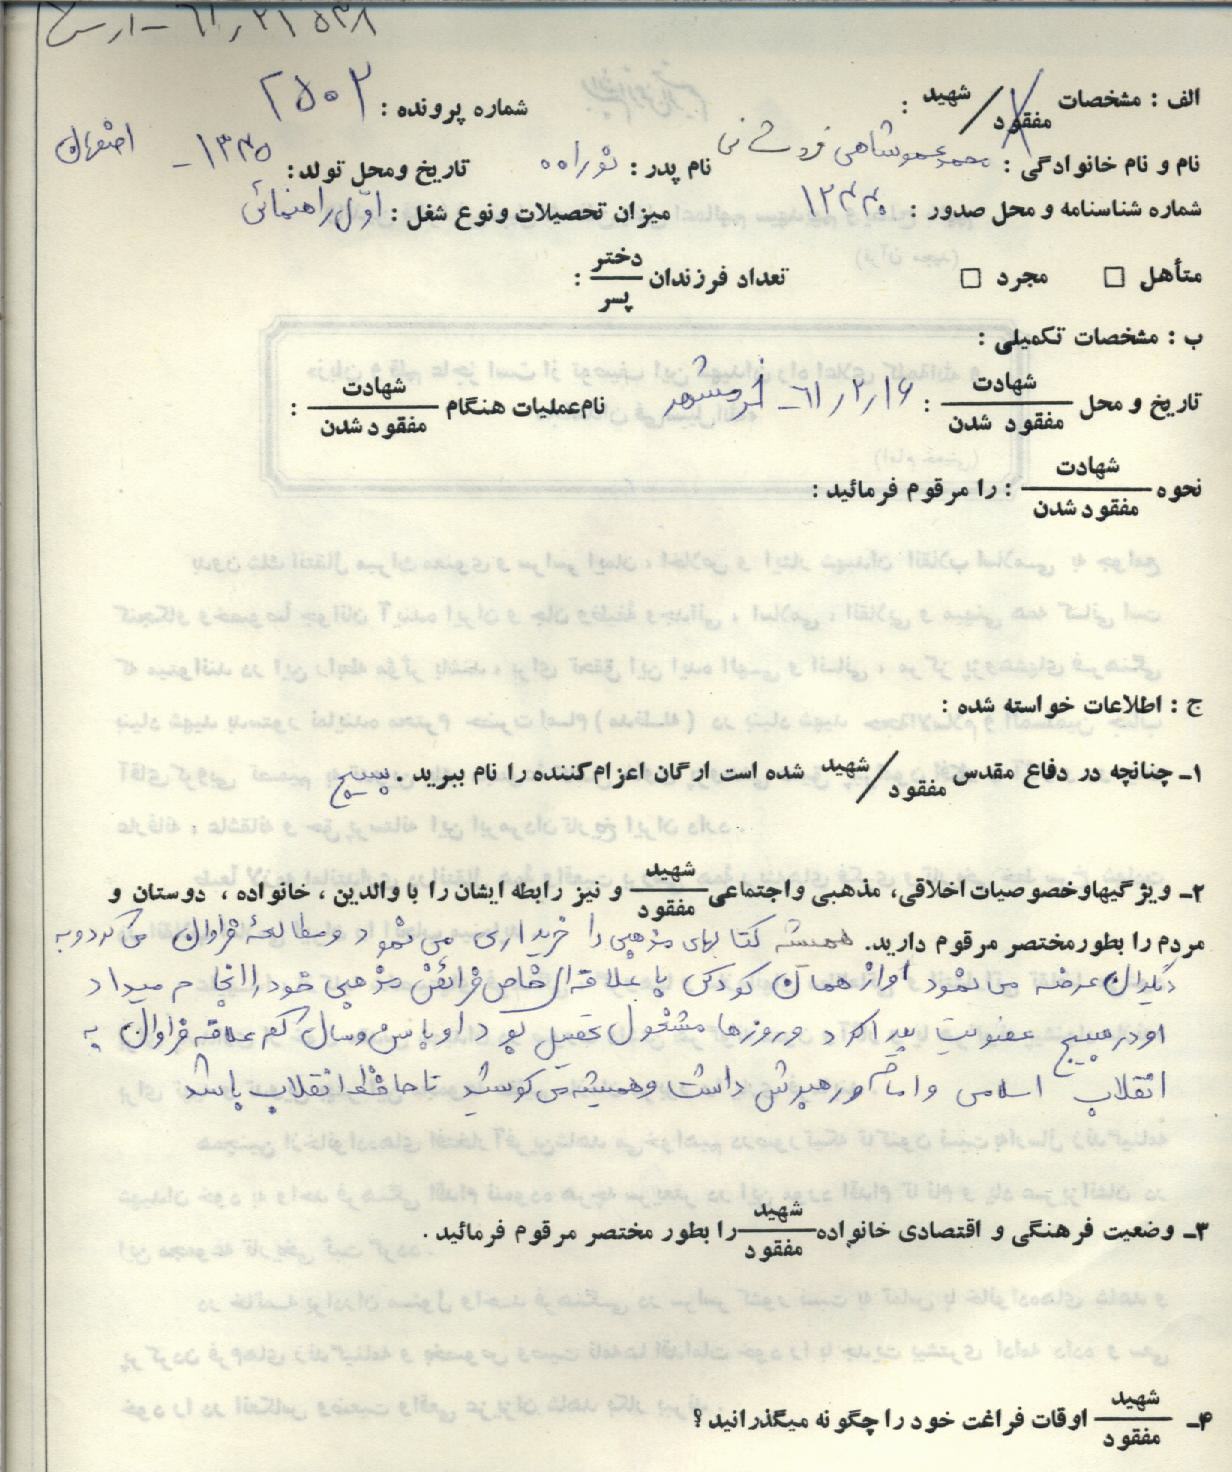 الف : مشخصات شهید / مفقود : شماره پرونده : ۲۵۰۲
نام و نام خانوادگی : محمد عموشاهی فروشانی نام پدر : تاریخ و محل تولد : ۱۳۴۵ - اصفهان
شماره شناسنامه و محل صدور : میزان تحصیلات و نوع شغل : اول راهنمائی
متأهل □ مجرد □ تعداد فرزندان دختر / پسر :
ب : مشخصات تکمیلی :
تاریخ و محل شهادت / مفقود شدن : ۶۱/۲/۱۶ - خرمشهر نام عملیات هنگام شهادت / مفقود شدن :
نحوه شهادت / مفقود شدن : را مرقوم فرمائید :
ج : اطلاعات خواسته شده :
۱- چنانچه در دفاع مقدس شهید / مفقود شده است ارگان اعزام کننده را نام ببرید . بسیج
۲- ویژگیها و خصوصیات اخلاقی، مذهبی و اجتماعی شهید / مفقود و نیز رابطه ایشان را با والدین ، خانواده ، دوستان و
مردم را بطور مختصر مرقوم دارید. همیشه کتابهای مذهبی را خریداری می نمود و مطالعهٔ فراوان می کرد و به
دیگران عرضه می نمود او از همان کودکی با علاقه ای خاص فرائض مذهبی خود را انجام میداد
او در بسیج عضویت پیدا کرد و روزها مشغول تحصیل بود او با سن و سال کم علاقه فراوان به
انقلاب اسلامی و امام و رهبرش داشت و همیشه می کوشید تا حافظ انقلاب باشد
۳- وضعیت فرهنگی و اقتصادی خانواده شهید / مفقود را بطور مختصر مرقوم فرمائید .
۴- شهید / مفقود اوقات فراغت خود را چگونه میگذرانید ؟